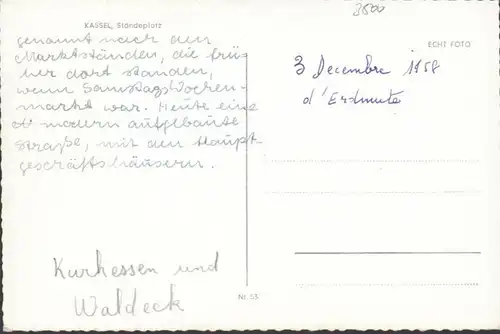 3500
KASSEL, Ständeplatz
ECHT FOTO
genannt nach den
Marktständen, die frü-
her dort standen,
wenn Samstags Wochen-
markt war. Heute eine
modern aufgebaute
Straße, mit den Haupt-
geschäftshäusern.
3 Decembre 1958
d'Erdmute
Kurhessen und
Waldeck
Nr. 53